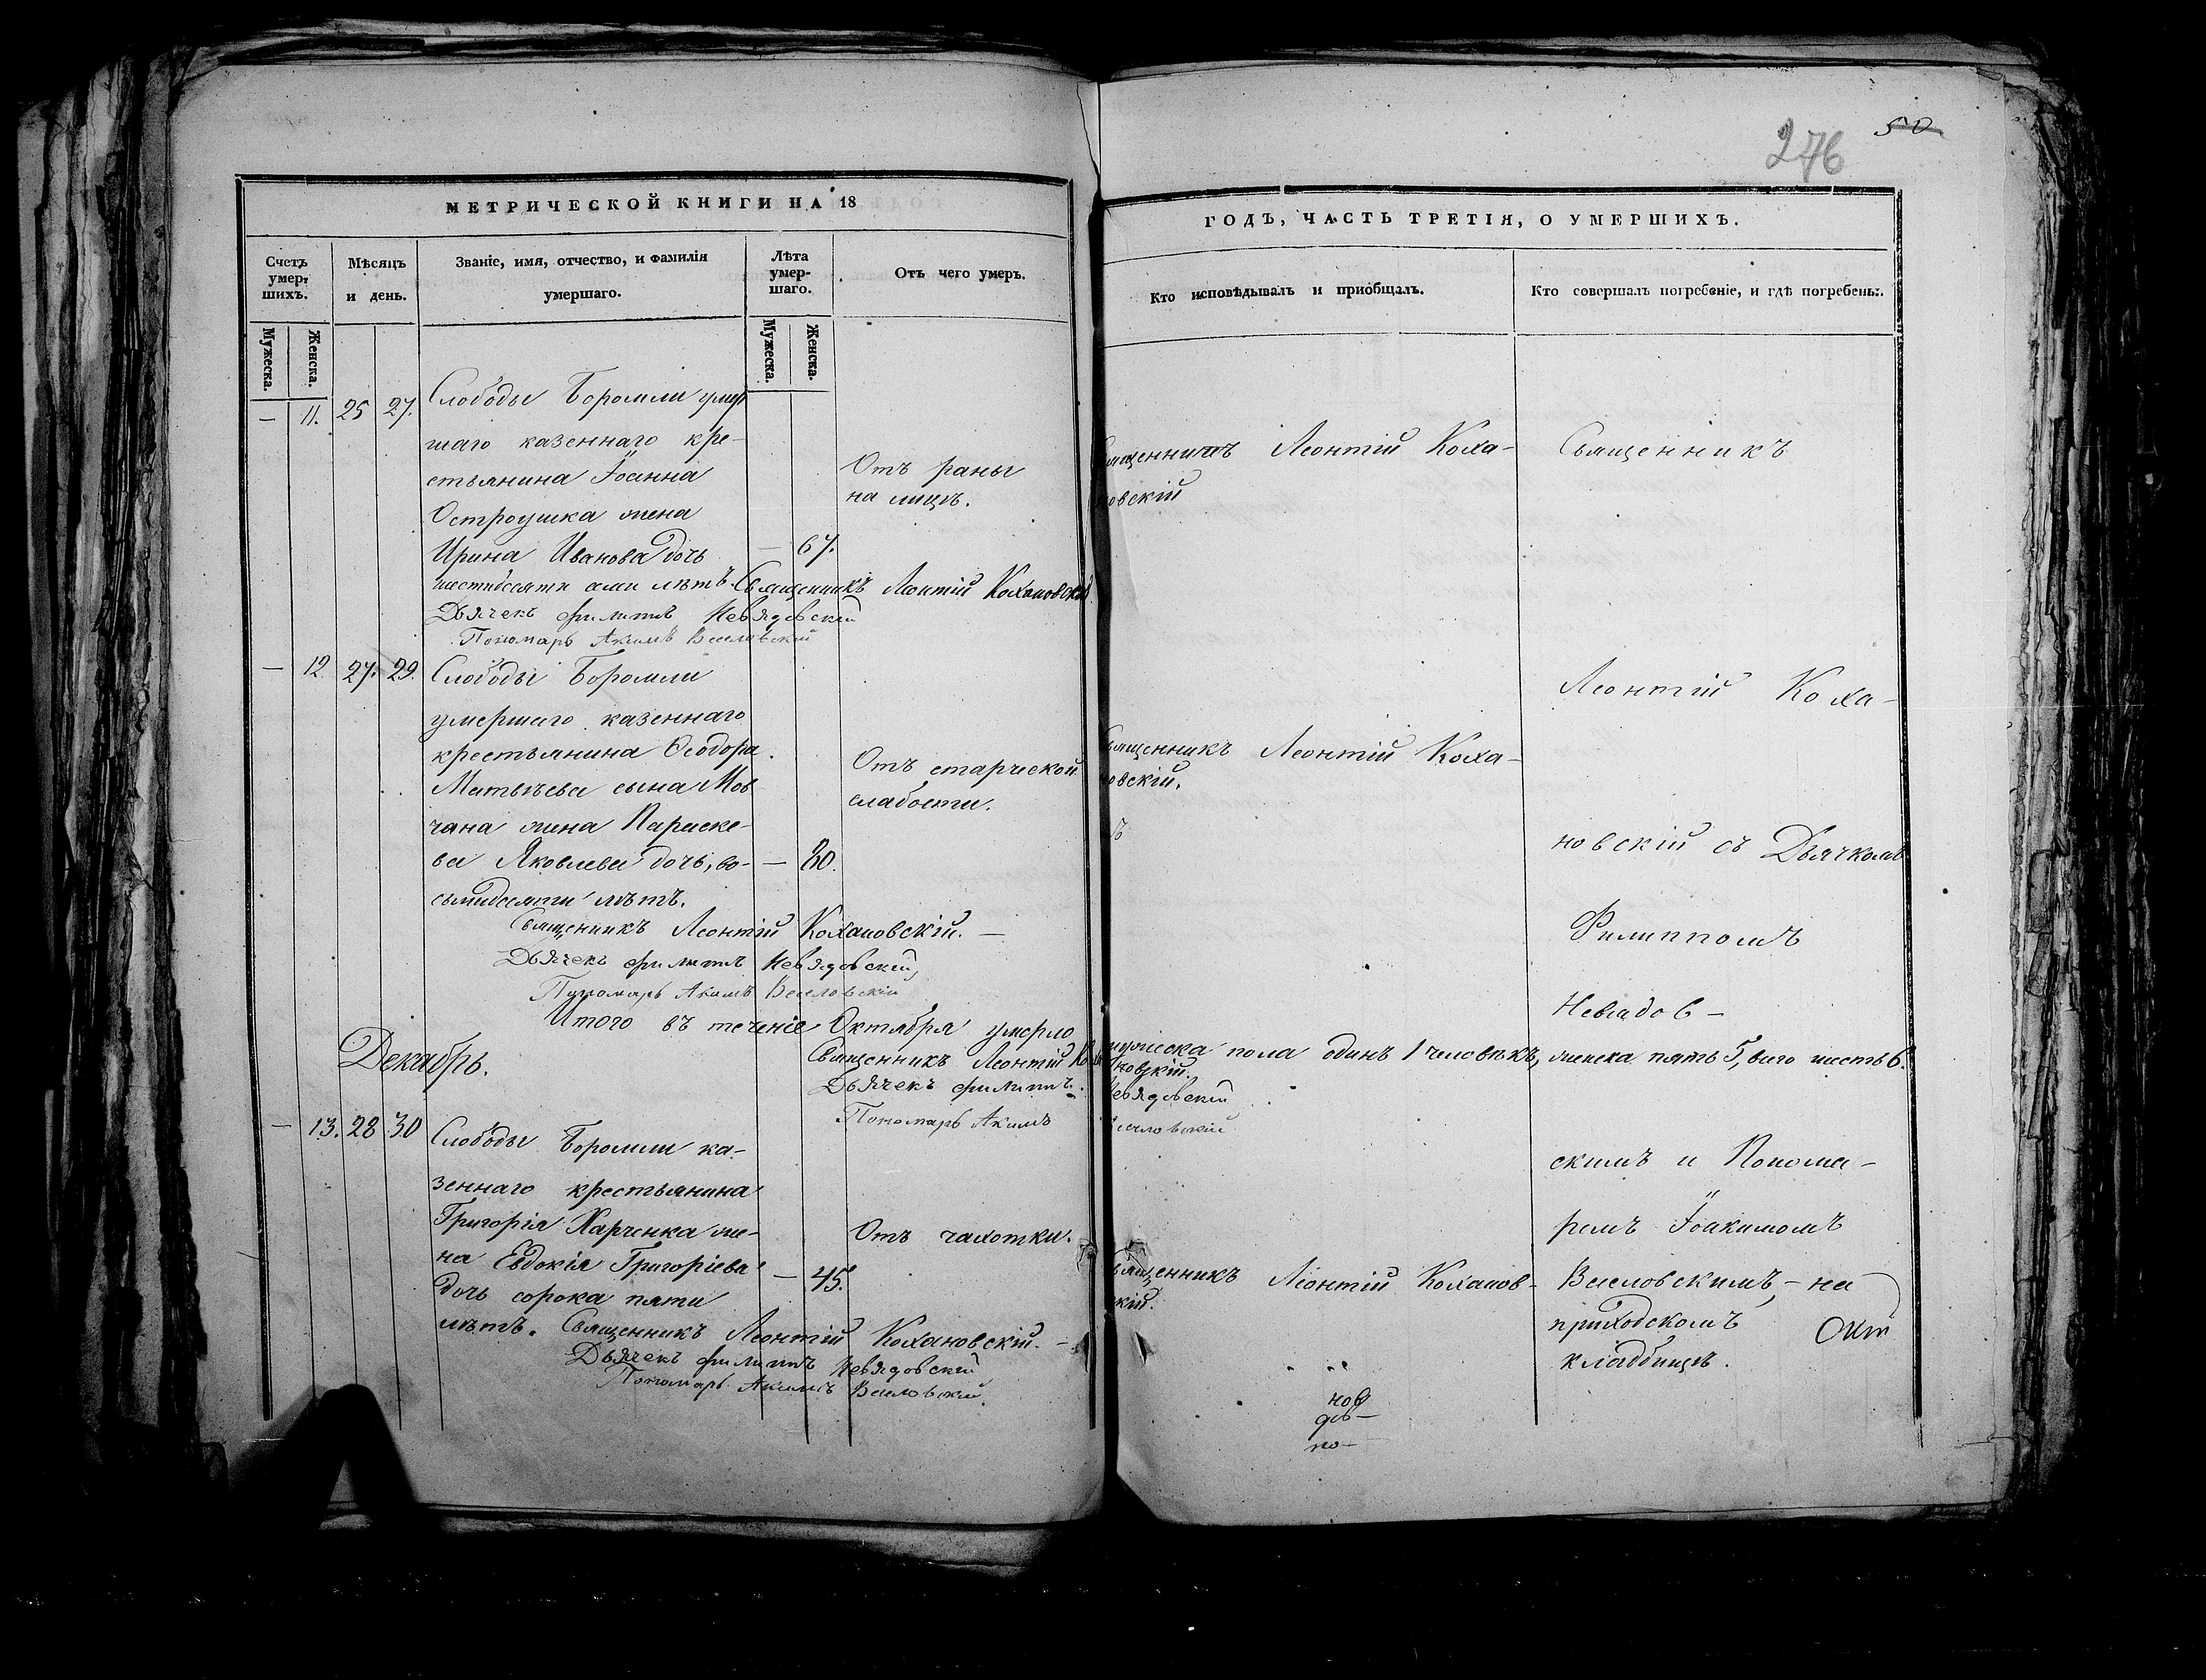 276 50
МЕТРИЧЕСКОЙ КНИГИ НА 18
ГОДЪ, ЧАСТЬ ТРЕТІЯ, О УМЕРШИХЪ.
Счетъ умер- шихъ.
Мѣсяцъ и день.
Званіе, имя, отчество, и фамилія умершаго.
Лѣта умер- шаго.
Отъ чего умеръ.
Кто исповѣдывалъ и пріобщалъ.
Кто совершалъ погребеніе, и гдѣ погребены.
Мужеска.
Женска.
Мужеска.
Женска.
— 11. 25 27.
Слободы Боромли умер
шаго казеннаго кре-
стьянина Іоанна
Остроушка жена
Ирина Иванова дочь — 67.
шестидесяти семи лѣтъ.
Отъ раны
на лицѣ.
Священникъ Леонтій Коха-
новскій
Священникъ Леонтій Кохановскій
Дьячекъ Филиппъ Невядовскій
Пономарь Акимъ Веселовскій
— 12. 27. 29.
Слободы Боромли
умершаго казеннаго
крестьянина Ѳеодора
Матвѣева сына Мов
чана жена Параске-
ва Яковлева дочь, во- — 80.
сьмидесяти лѣтъ.
Отъ старческой
слабости.
Священникъ Леонтій Коха-
новскій.
Священникъ Леонтій Кохановскій. —
Дьячекъ Филиппъ Невядовскій
Пономарь Акимъ Веселовскій
Итого въ теченіе Октября умерло мужеска пола одинъ 1 человѣкъ, женска пять 5, всего шесть 6.
Священникъ Леонтій Кохановскій.
Дьячекъ Филиппъ Невядовскій
Пономарь Акимъ Веселовскій
Декабрь.
— 13. 28 30
Слободы Боромли ка-
зеннаго крестьянина
Григорія Харченка же-
на Евдокія Григоріева — 45.
дочь сорока пяти
лѣтъ.
Отъ чахотки.
Священникъ Леонтій Коханов-
скій.
Священникъ Леонтій Кохановскій. —
Дьячекъ Филиппъ Невядовскій
Пономарь Акимъ Веселовскій.
Священникъ
Леонтій Коха-
новскій съ Дьячкомъ
Филиппомъ
Невядов-
скимъ и Понома-
ремъ Іоакимомъ
Веселовскимъ, — на
приходскомъ
кладбищѣ.
Окт
нов
дѣ—
по—